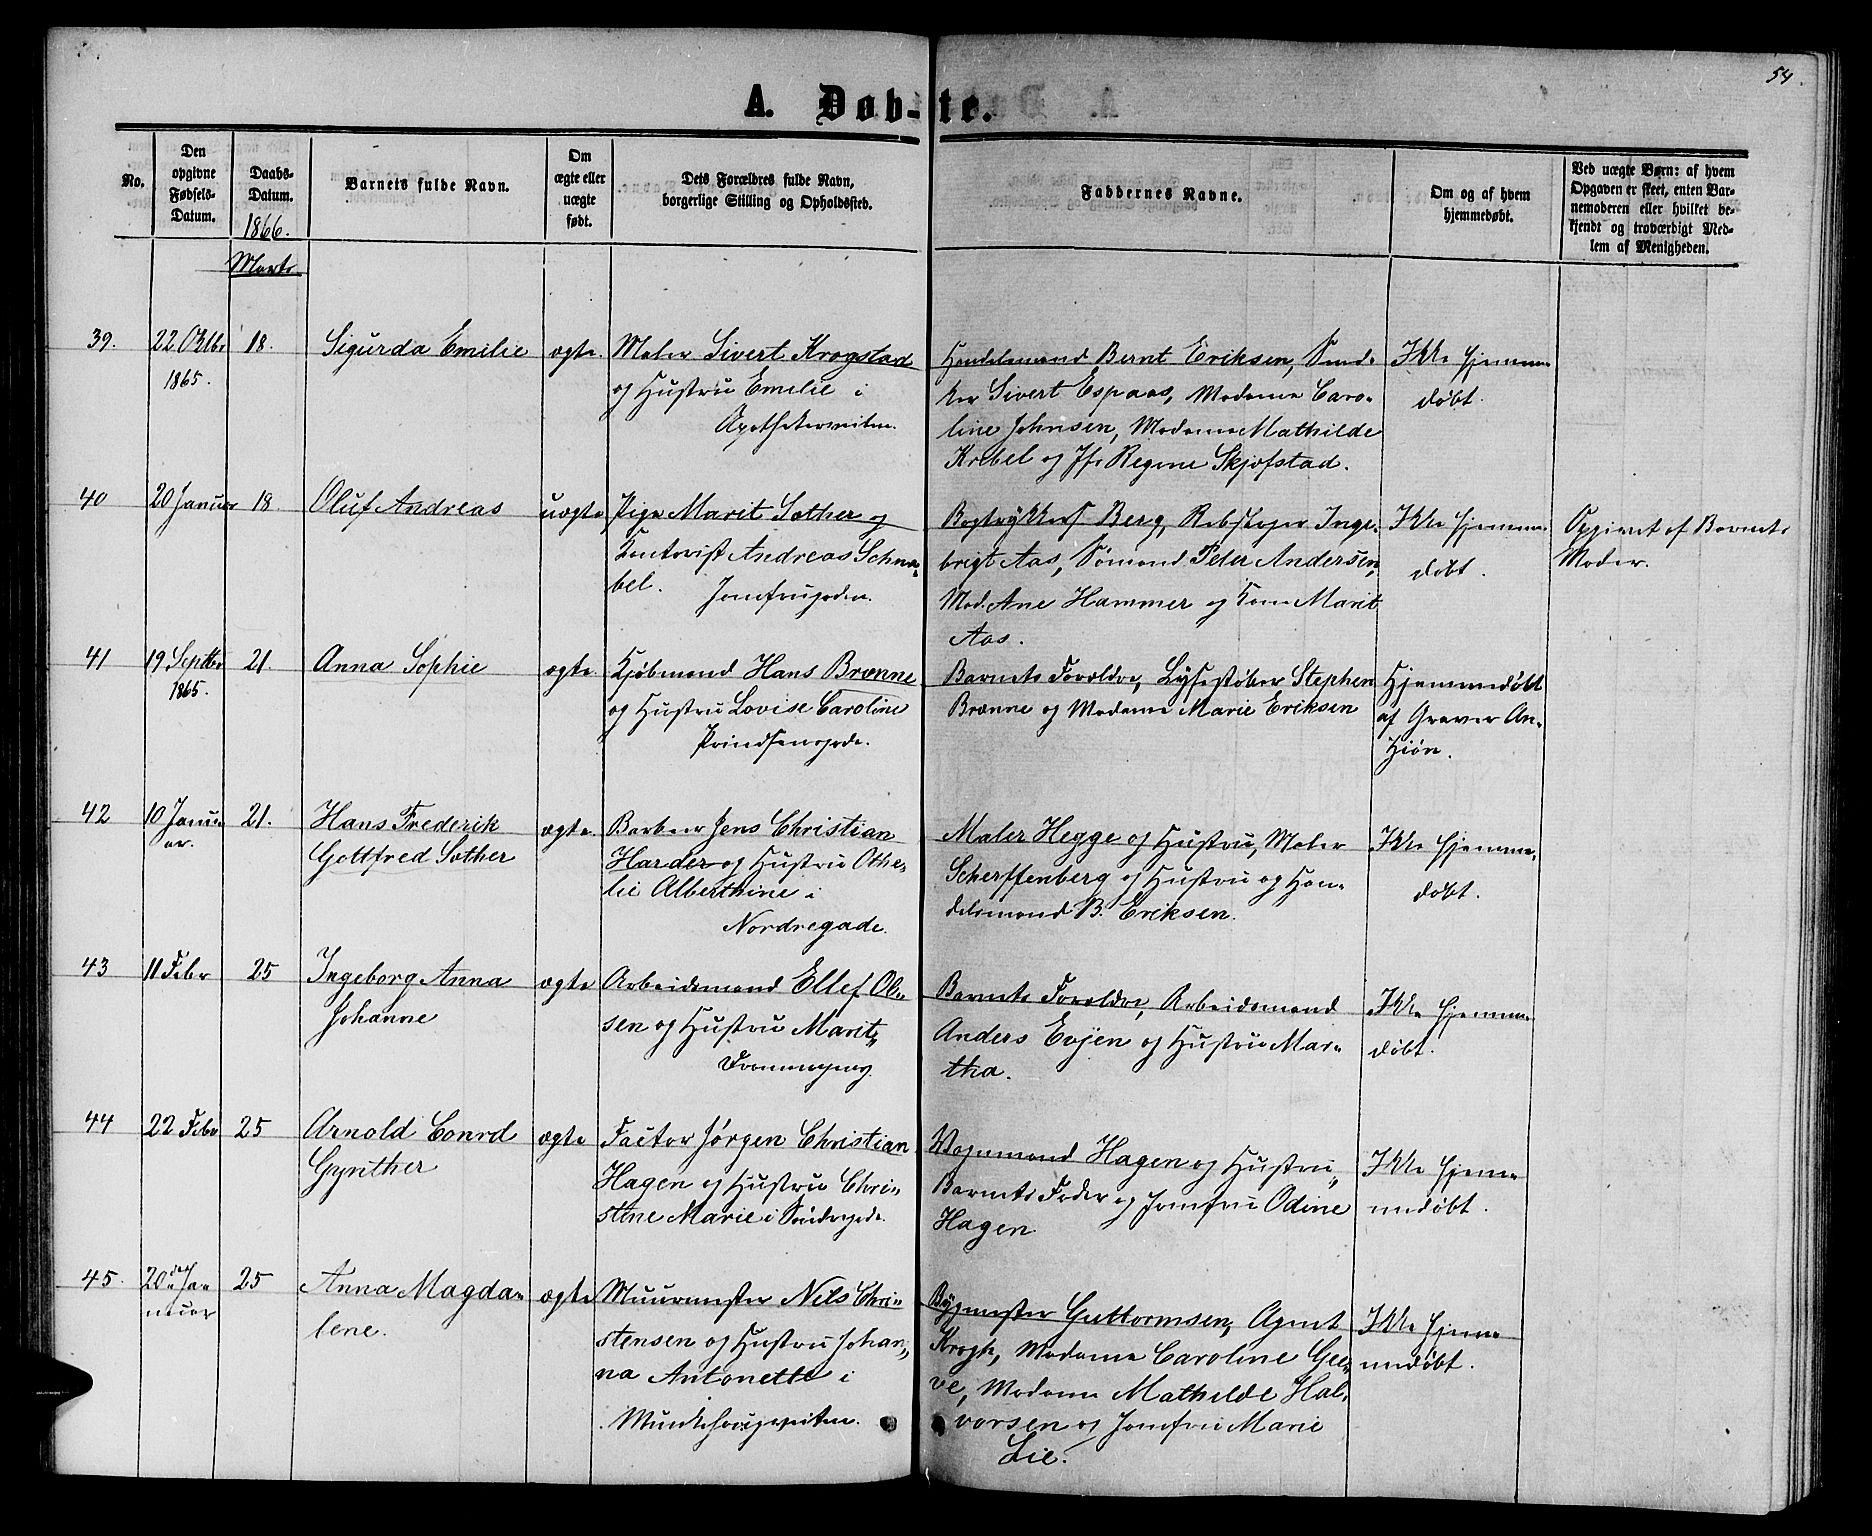 54.
A. Døb-te.
No.
Den
opgivne
Fødsels-
Datum.
Daabs-
Datum.
1866.
Barnets fulde Navn.
Om
ægte eller
uægte
født.
Dets Forældres fulde Navn,
borgerlige Stilling og Opholdssted.
Faddernes Navne.
Om og af hvem
hjemmedøbt.
Ved uægte Børn: af hvem
Opgaven er skeet, enten Bar-
nemoderen eller hvilket be-
kjendt og troværdigt Med-
lem af Menigheden.
Marts
39.
22 Oktbr
1865.
18.
Sigurda Emilie
ægte.
Maler Sivert Krogstad
og Hustru Emilie i
Apothekerveiten.
Handelsmand Bernt Eriksen, Sned-
ker Sivert Espaas, Madame Caro-
line Johnsen, Madame Mathilde
Krebel og Jfr Regine Skjøfstad.
Ikke hjemme-
døbt.
40
20 Januar
18
Oluf Andreas
uægte
Pige Marit Sæther og
Kontorist Andreas Schna-
bel. Jomfrugaden.
Bogtrykkers Berg, Rebslager Inge-
brigt Aas, Sømand Peter Andersen,
Mad. Ane Hammer og Kone Marit
Aas.
Ikke hjemme-
døbt.
Opgivet af Barnets
Moder.
41
19 Septbr
1865.
21.
Anna Sophie
ægte.
Kjøbmand Hans Brønne
og Hustru Lovise Caroline
Prindsensgade.
Barnets Forældre, Lysestøber Stephen
Brønne og Madame Marie Eriksen
Hjemmedøbt
af Graver An-
ziøn.
42
10 Janu-
ar.
21.
Hans Frederik
Gottfred Sæther
ægte.
Barbeer Jens Christian
Harder og Hustru Othe-
lie Alberthine i
Nordregade.
Maler Hegge og Hustru, Maler
Scherffenberg og Hustru og Han-
delsmand B. Eriksen.
Ikke hjemme-
døbt.
43
11 Febr
25
Ingeborg Anna
Johanne
ægte
Arbeidsmand Ellef Ol-
sen og Hustru Marit,
Barnets Forældre, Arbeidsmand
Anders Evjen og Hustru Mar-
tha.
Ikke hjemme-
døbt.
44
22 Febr
25
Arnold Conrd
Gynther
ægte
Factor Jørgen Christian
Hagen og Hustru Chri-
stine Marie i Søndregade.
Vognmand Hagen og Hustru,
Barnets Fader og Jomfru Odine
Hagen
Ikke hjem-
medøbt.
45.
20de Ja-
nuar
25
Anna Magda-
lene.
ægte
Muurmester Nils Chri-
stensen og Hustru Johan-
na Antonette i
Munkehaugveiten.
Bygmester Guttormsen, Agent
Krogh, Madame Caroline Gee-
ve, Madame Mathilde Hal-
vorsen og Jomfru Marie
Lie.
Ikke hjem-
medøbt.